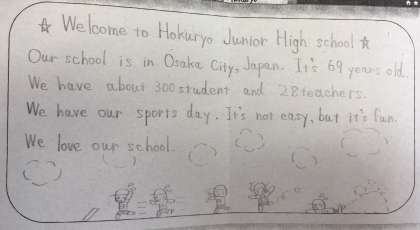 ☆ Welcome to Hokuryo Junior High school ☆
Our school is in Osaka City, Japan. It's 69 years old.
We have about 300 student and 28 teachers.
We have our sports day. It's not easy, but it's fun.
We love our school.